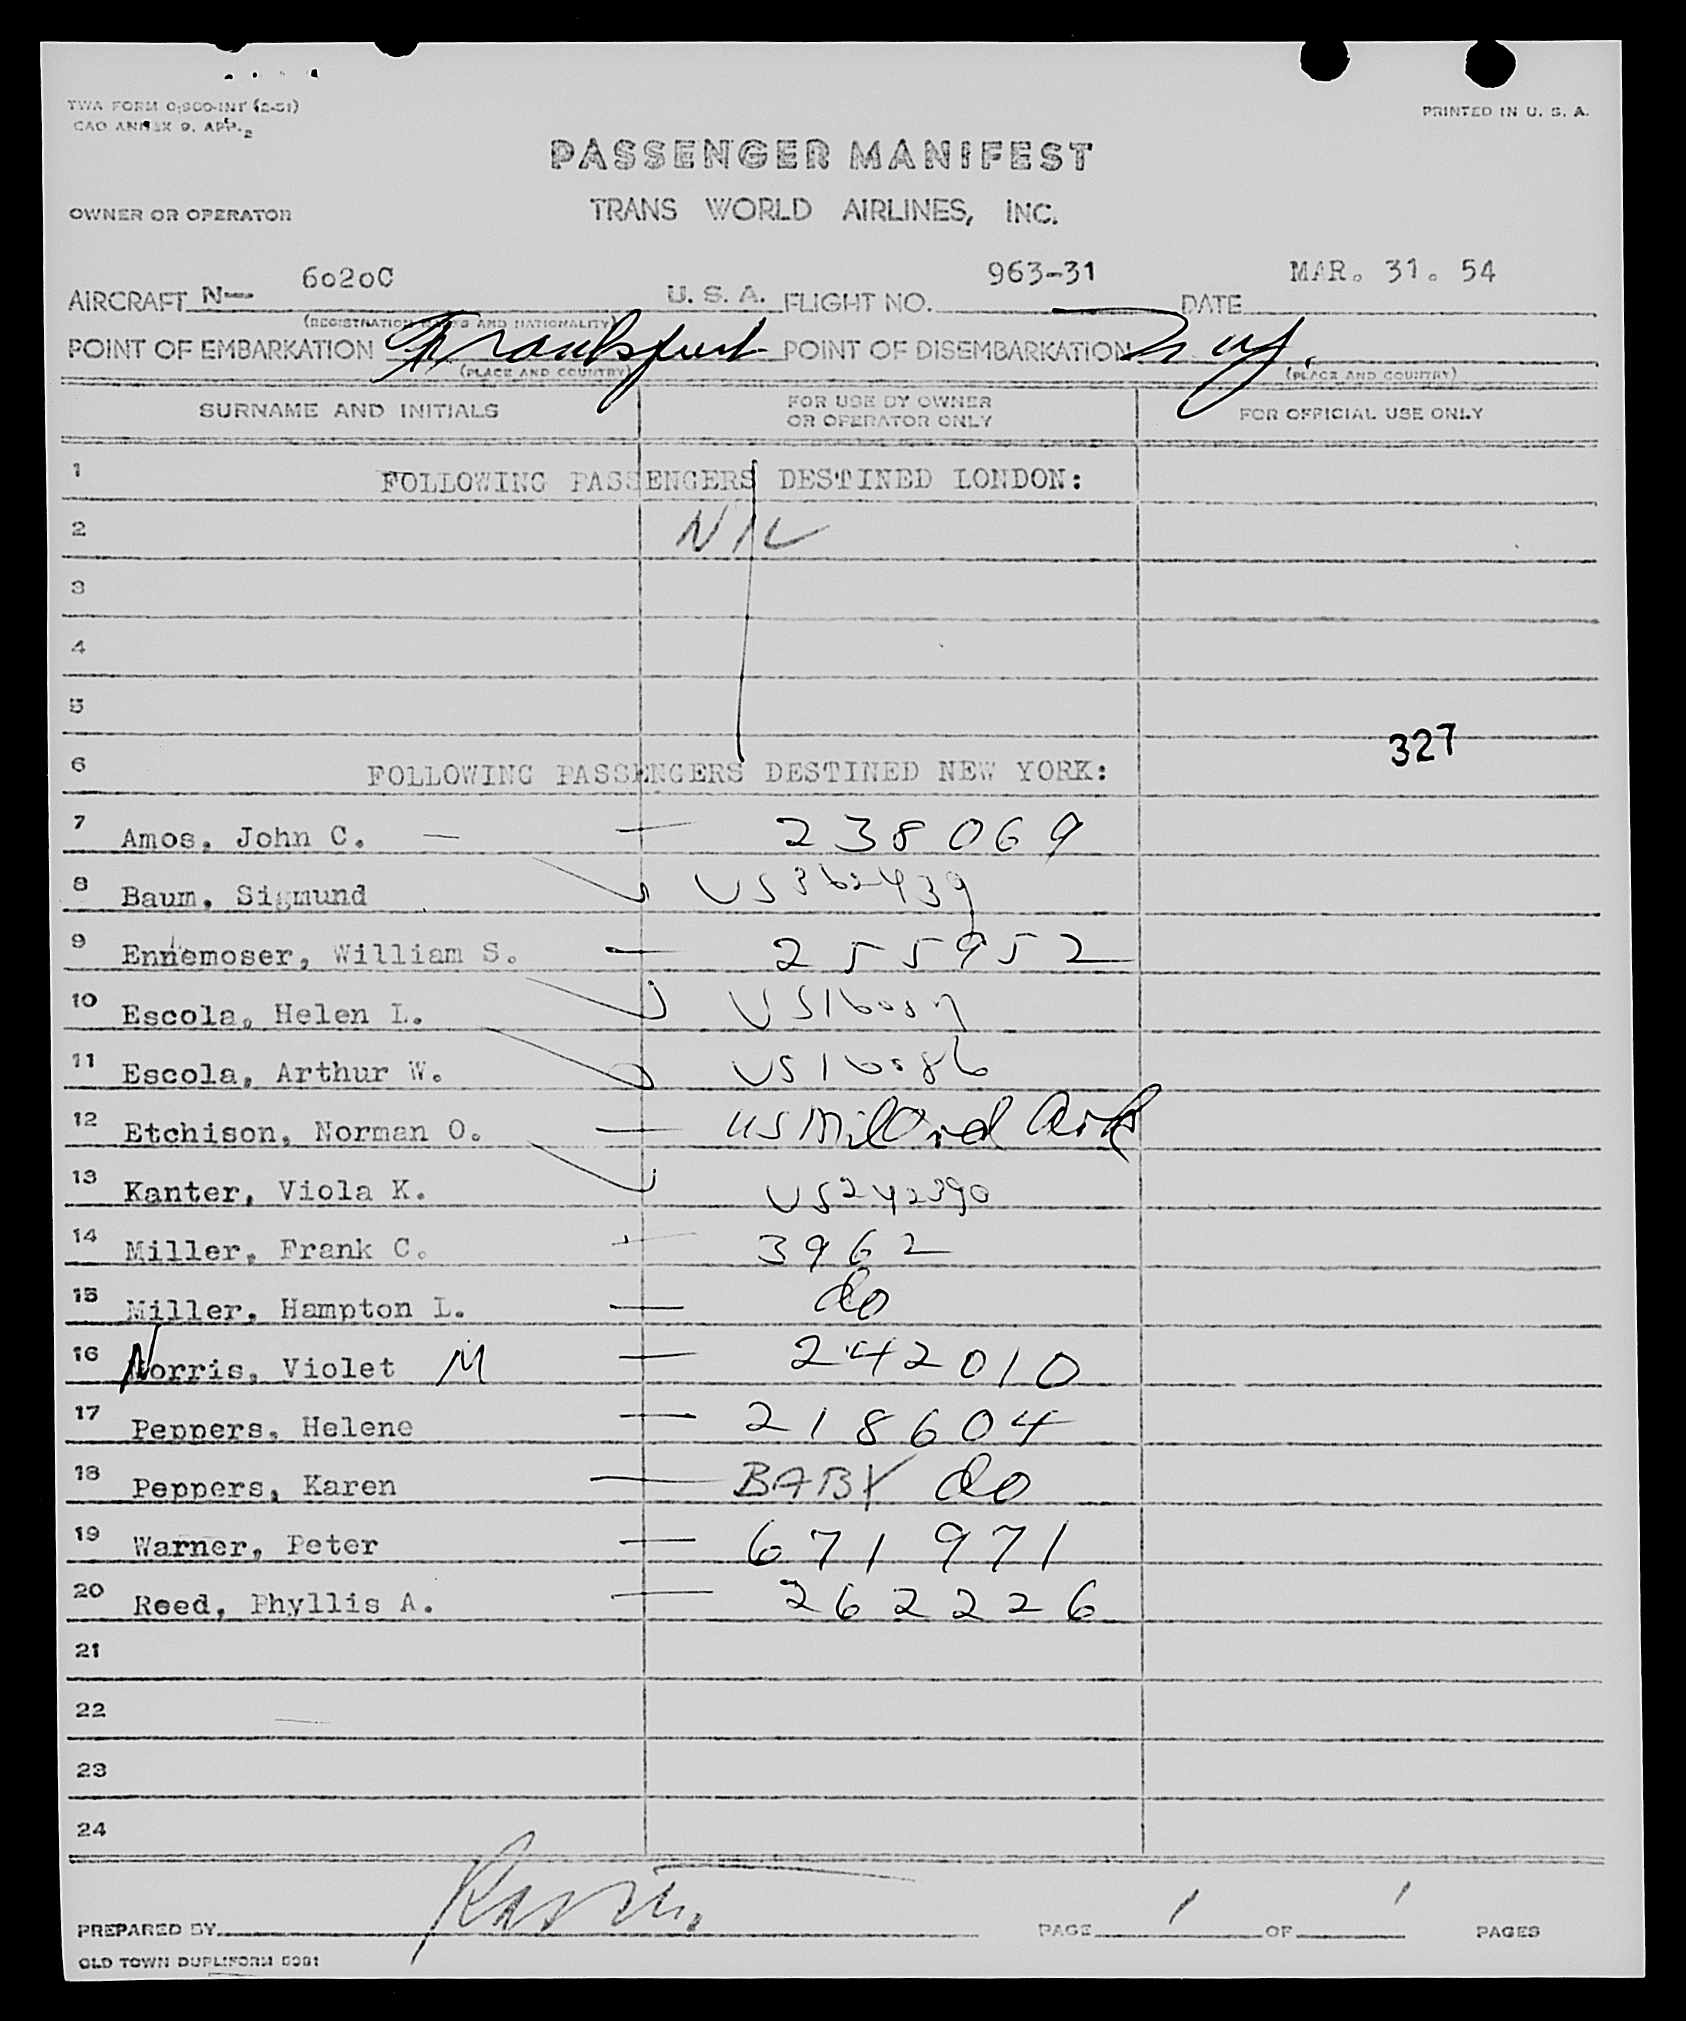 TWA FORM O-900-INT (2-51)
CAO ANNEX 9. APP. 2
PRINTED IN U. S. A.
PASSENGER MANIFEST
OWNER OR OPERATOR TRANS WORLD AIRLINES, INC.
AIRCRAFT N— 6020C U. S. A. FLIGHT NO. 963-31 DATE MAR. 31. 54
(REGISTRATION MARKS AND NATIONALITY)
POINT OF EMBARKATION Frankfurt POINT OF DISEMBARKATION N Y.
(PLACE AND COUNTRY) (PLACE AND COUNTRY)
SURNAME AND INITIALS FOR USE BY OWNER OR OPERATOR ONLY FOR OFFICIAL USE ONLY
1 FOLLOWING PASSENGERS DESTINED LONDON:
2 NIL
3
4
5
327
6 FOLLOWING PASSENGERS DESTINED NEW YORK:
7 Amos, John C. — — 238069
8 Baum, Sigmund US362439
9 Ennemoser, William S. — 255952
10 Escola, Helen L. US16087
11 Escola, Arthur W. US16086
12 Etchison, Norman O. — US Mil Ord
13 Kanter, Viola K. US242390
14 Miller, Frank C. — 3962
15 Miller, Hampton L. — do
16 Norris, Violet M — 242010
17 Peppers, Helene — 218604
18 Peppers, Karen — BABY do
19 Warner, Peter — 671971
20 Reed, Phyllis A. — 262226
21
22
23
24
PREPARED BY PAGE 1 OF 1 PAGES
OLD TOWN DUPLIFORM 5001